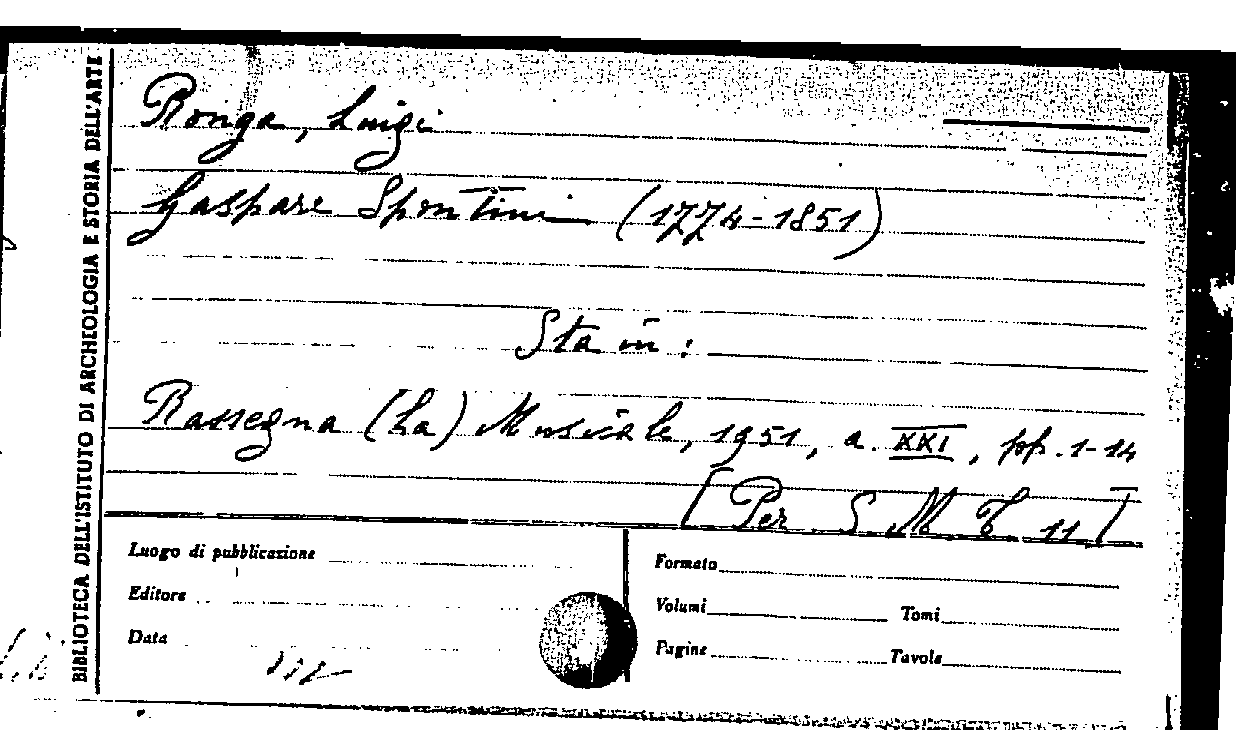 BIBLIOTECA DELL'ISTITUTO DI ARCHEOLOGIA E STORIA DELL'ARTE
Ronga, Luigi
Gaspare Spontini (1774-1851)
Sta in:
Rassegna (La) Musicale, 1951, a. XXI, pp. 1-14
[Per. S M T 11]
Luogo di pubblicazione
Editore
Data
Formato
Volumi Tomi
Pagine Tavole